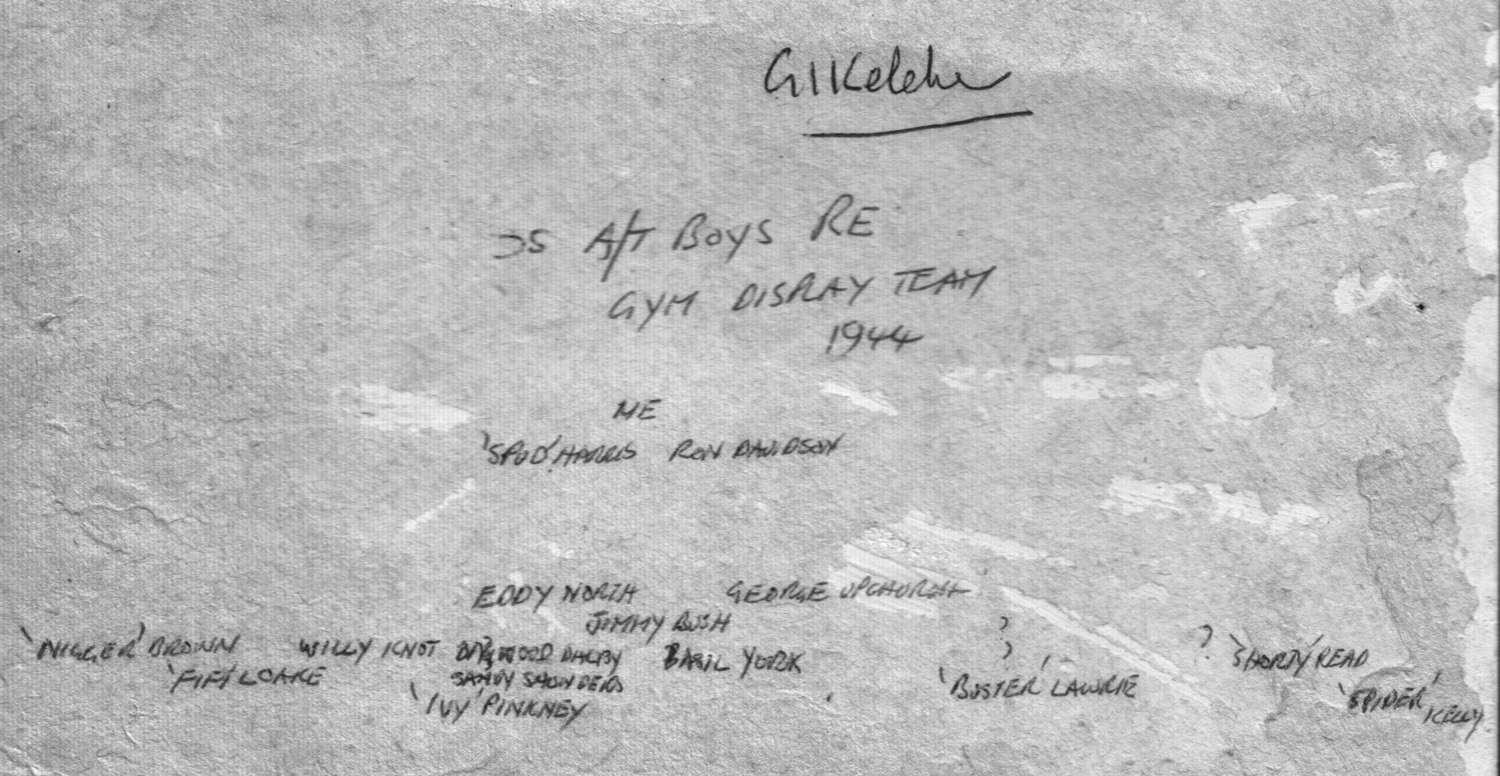 GIKeleher
35 A/T BOYS RE
GYM DISPLAY TEAM
1944
ME
'SPUD' HARRIS RON DAVIDSON
EDDY NORTH GEORGE UPCHURCH
JIMMY BUSH
'NIGGER' BROWN WILLY KNOT DAGWOOD DALBY BASIL YORK ? ? 'SHORTY' READ
'FIFI' LOAKE SANDY SAUNDERS ? 'BUSTER' LAWRIE 'SPIDER' KELLY
'IVY' PINKNEY